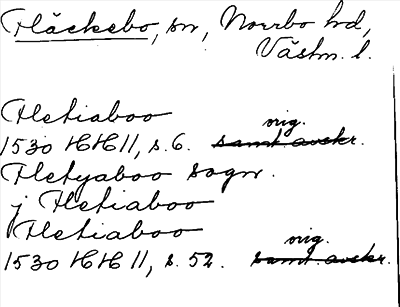 Fläckebo, sn, Norrbo hd,
Västm. l.
Fletiaboo
orig.
1530 HH II, s. 6. samt avskr.
Fletyaboo sogn.
j Fletiaboo
Fletiaboo
orig.
1530 HH II, s. 52. samt. avskr.